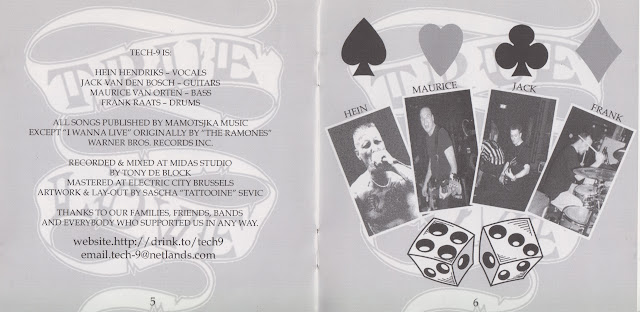 TECH-9 IS:
HEIN HENDRIKS – VOCALS
JACK VAN DEN BOSCH – GUITARS
MAURICE VAN ORTEN – BASS
FRANK RAATS – DRUMS
ALL SONGS PUBLISHED BY MAMOTSJKA MUSIC
EXCEPT "I WANNA LIVE" ORIGINALLY BY "THE RAMONES"
WARNER BROS. RECORDS INC.
RECORDED & MIXED AT MIDAS STUDIO
BY TONY DE BLOCK
MASTERED AT ELECTRIC CITY BRUSSELS
ARTWORK & LAY-OUT BY SASCHA "TATTOOINE" SEVIC
THANKS TO OUR FAMILIES, FRIENDS, BANDS
AND EVERYBODY WHO SUPPORTED US IN ANY WAY.
website.http://drink.to/tech9
email.tech-9@netlands.com
5
HEIN
MAURICE
JACK
FRANK
6